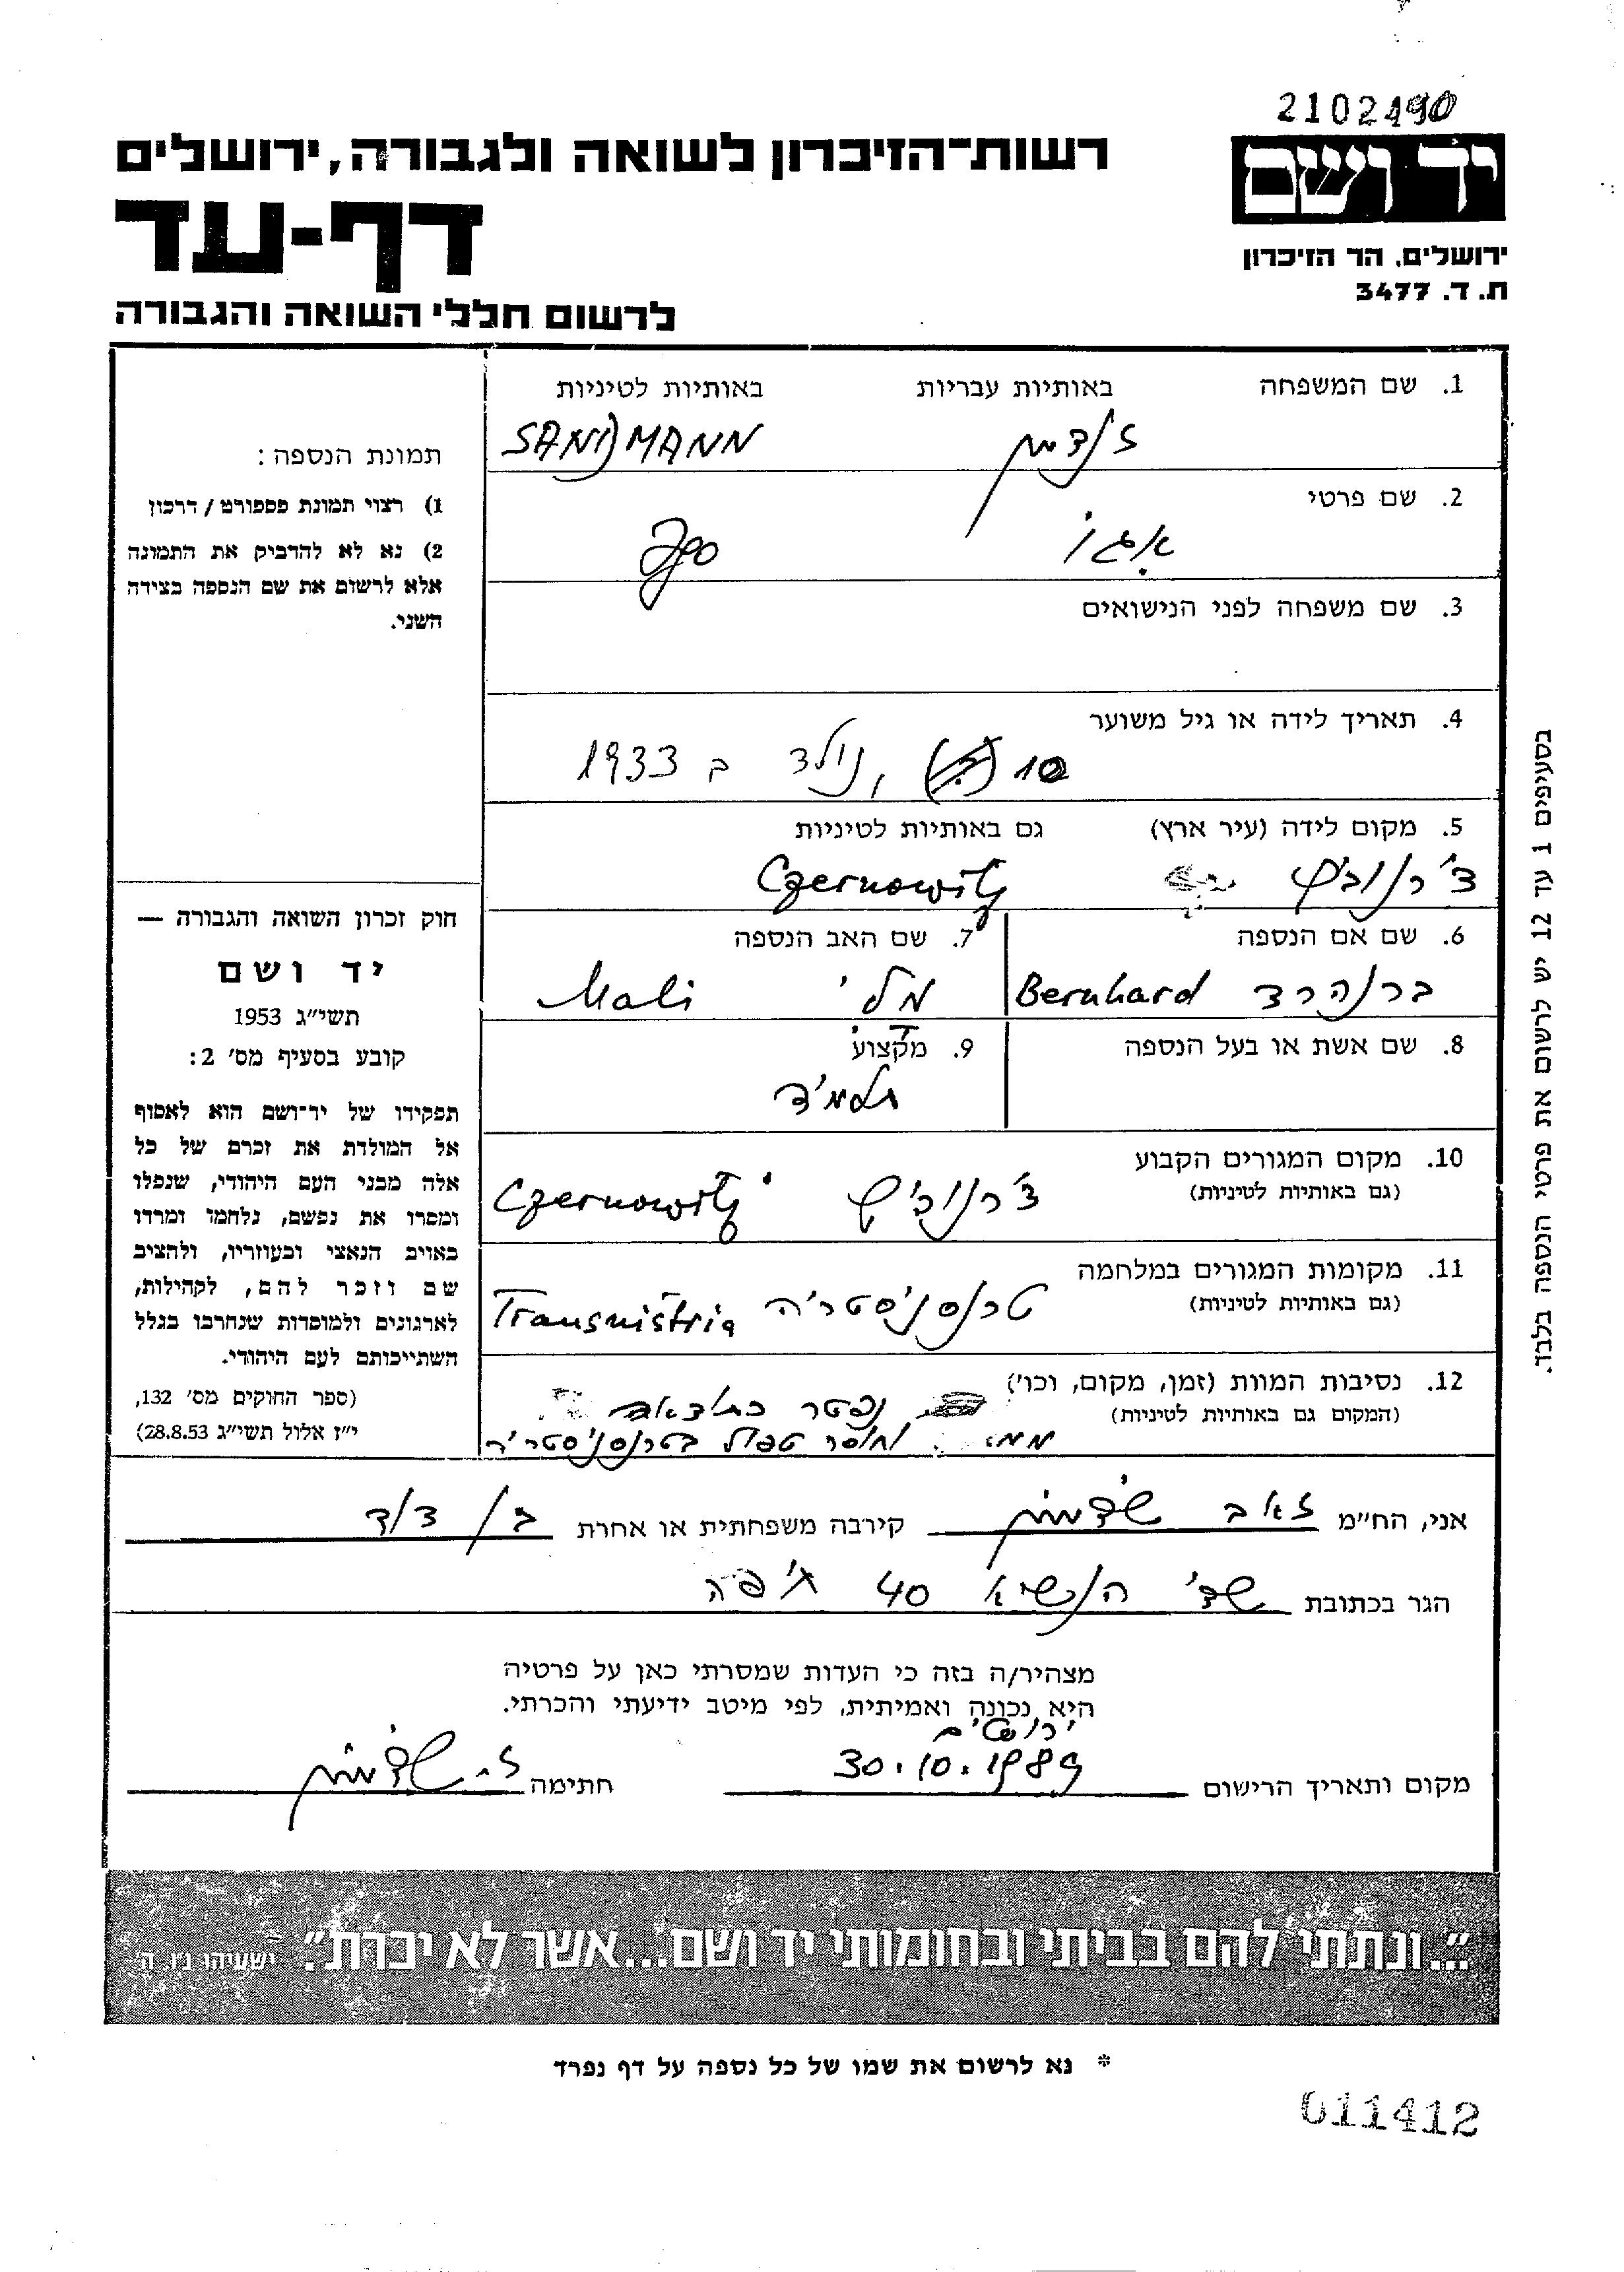 2102490
יד ושם
רשות־הזיכרון לשואה ולגבורה, ירושלים
דף-עד
לרשום חללי השואה והגבורה
ירושלים, הר הזיכרון
ת. ד. 3477
1. שם המשפחה באותיות עבריות באותיות לטיניות
זנדמן SANDMANN
2. שם פרטי
אגו Jgo
3. שם משפחה לפני הנישואים
4. תאריך לידה או גיל משוער
10 , נולד ב 1933
5. מקום לידה (עיר ארץ) גם באותיות לטיניות
צ'רנוביץ Czernowitz
6. שם אם הנספה 7. שם האב הנספה
ברנהרד Bernhard מלי Mali
8. שם אשת או בעל הנספה 9. מקצוע
תלמיד
10. מקום המגורים הקבוע
(גם באותיות לטיניות)
צ'רנוביץ Czernowitz
11. מקומות המגורים במלחמה
(גם באותיות לטיניות)
טרנסניסטריה Transnistria
12. נסיבות המוות (זמן, מקום, וכו')
(המקום גם באותיות לטיניות)
נפטר כתוצאה
וחוסר טפול בטרנסניסטריה
תמונת הנספה:
1) רצוי תמונת פספורט / דרכון
2) נא לא להדביק את התמונה
אלא לרשום את שם הנספה בצידה
השני.
חוק זכרון השואה והגבורה —
יד ושם
תשי״ג 1953
קובע בסעיף מס׳ 2:
תפקידו של יד־ושם הוא לאסוף
אל המולדת את זכרם של כל
אלה מבני העם היהודי, שנפלו
ומסרו את נפשם, נלחמו ומרדו
באויב הנאצי ובעוזריו, ולהציב
שם וזכר להם, לקהילות,
לארגונים ולמוסדות שנחרבו בגלל
השתייכותם לעם היהודי.
(ספר החוקים מס׳ 132,
י״ז אלול תשי״ג 28.8.53)
בסעיפים 1 עד 12 יש לרשום את פרטי הנספה בלבד.
אני, הח״מ זאב שדמון קירבה משפחתית או אחרת בן דוד
הגר בכתובת שד' הנשיא 40 חיפה
מצהיר/ה בזה כי העדות שמסרתי כאן על פרטיה
היא נכונה ואמיתית, לפי מיטב ידיעתי והכרתי.
ירושלים
מקום ותאריך הרישום 30.10.1989 חתימה ז. שדמון
״...ונתתי להם בביתי ובחומותי יד ושם...אשר לא יכרת״. ישעיהו נ״ו, ה׳
* נא לרשום את שמו של כל נספה על דף נפרד
011412